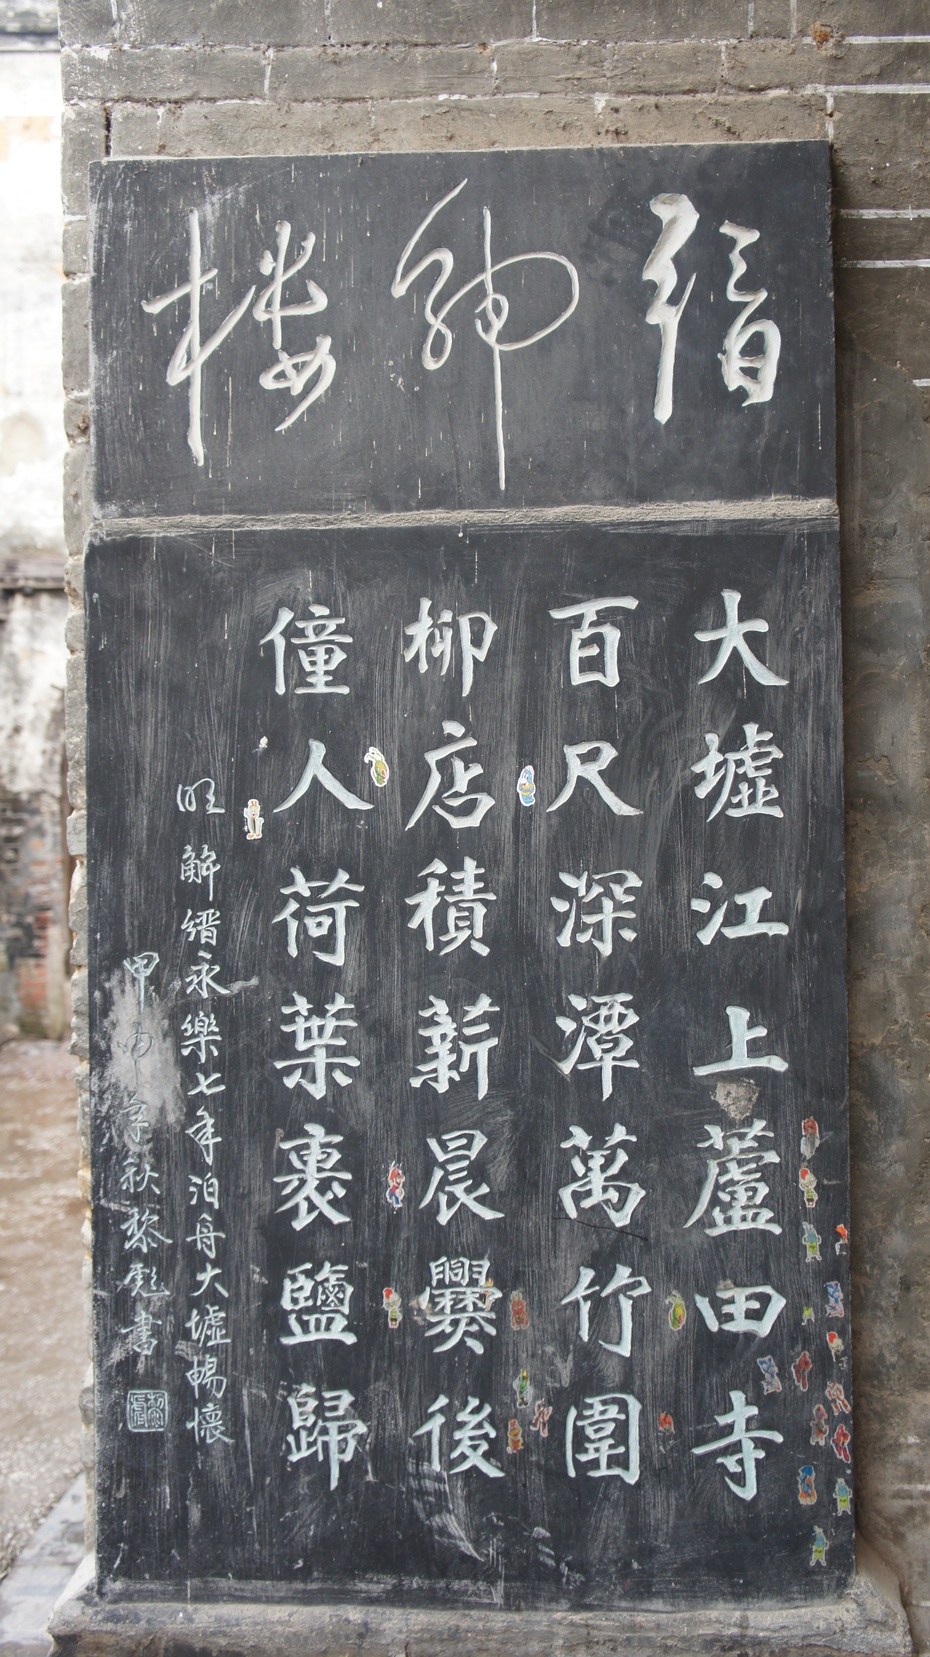 縉紳樓
大墟江上蘆田寺
百尺深潭萬竹圍
柳店積薪晨爨後
僮人荷葉裹鹽歸
明 解縉永樂七年泊舟大墟暢懷
甲申年秋黎彪書